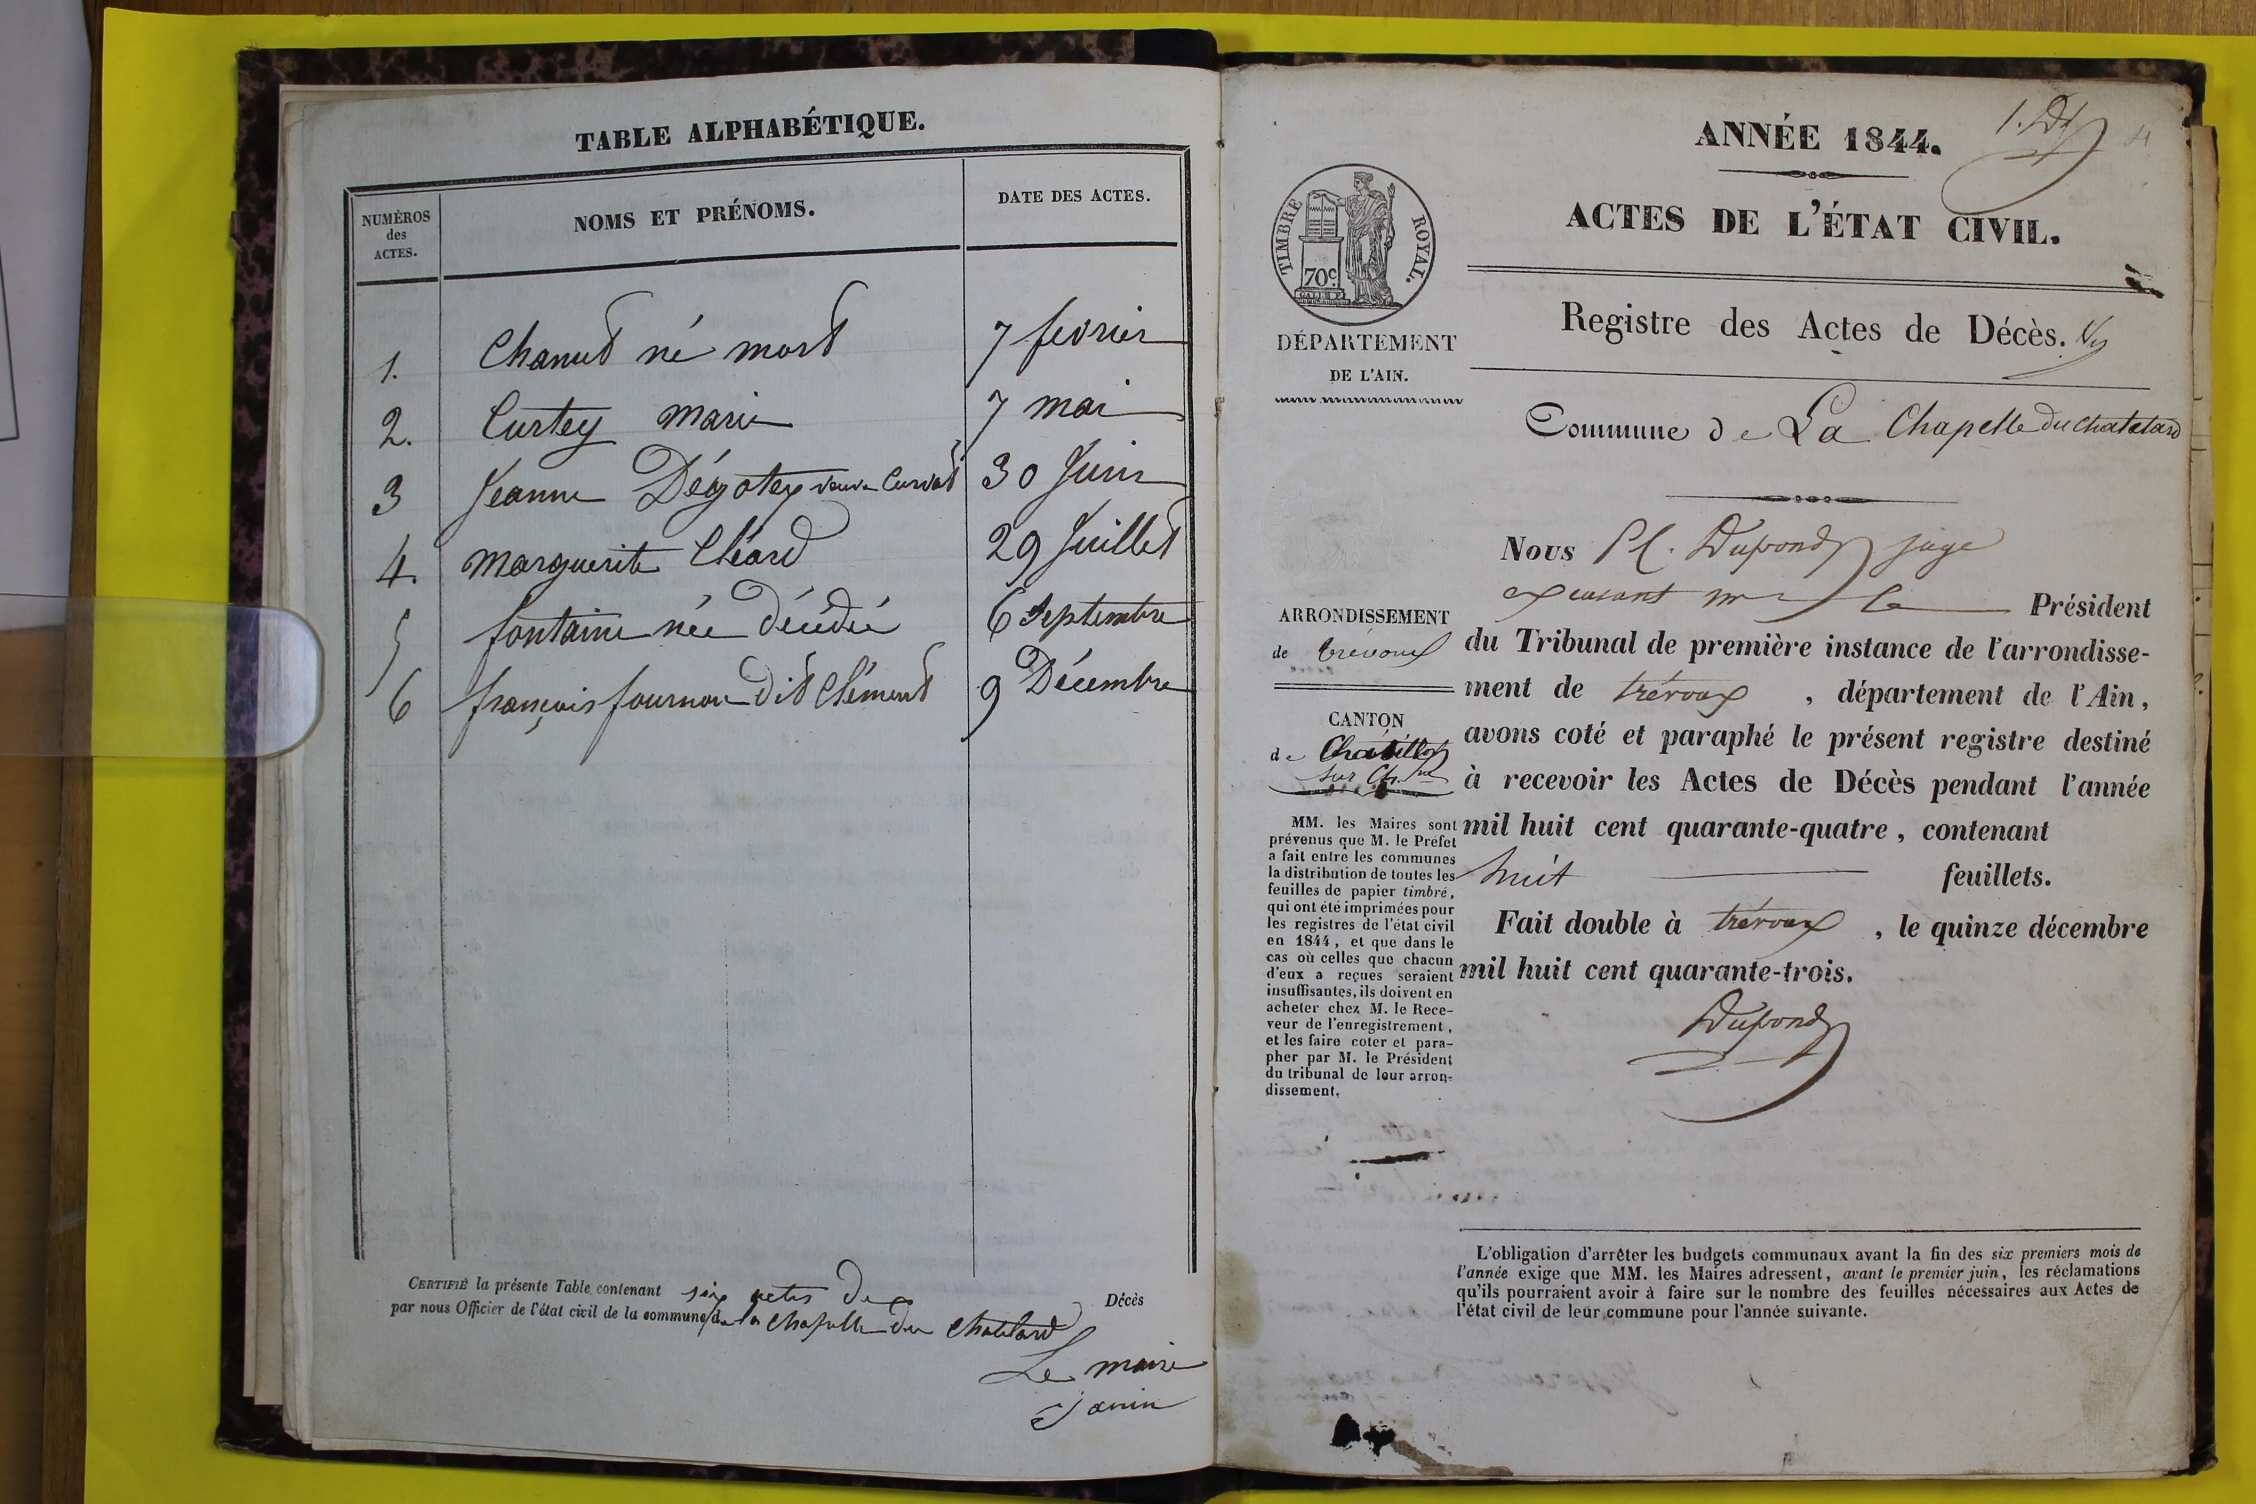 TABLE ALPHABÉTIQUE.
NUMÉROS
des
ACTES.
NOMS ET PRÉNOMS.
DATE DES ACTES.
1. Chanut né mort 7 fevrier
2. Curtey marie 7 mai
3 Jeanne Dégotey veuve Curvat 30 Juin
4. marguerite Cléard 29 Juillet
5 fontaine née Décédée 6 Septembre
6 françois fournon Dit Clément 9 Décembre
CERTIFIÉ la présente Table contenant six actes de Décès
par nous Officier de l'état civil de la commune de la Chapelle du Chatelard
Le maire
Janin
ANNÉE 1844.
ACTES DE L'ÉTAT CIVIL.
TIMBRE ROYAL.
70c
DÉPARTEMENT
DE L'AIN.
Registre des Actes de Décès.
Commune de La Chapelle du Chatelard
Nous Dupond juge
Président
ARRONDISSEMENT
de trévoux
du Tribunal de première instance de l'arrondisse-
ment de trévoux , département de l'Ain,
CANTON
de Chatillon
sur
avons coté et paraphé le présent registre destiné
à recevoir les Actes de Décès pendant l'année
mil huit cent quarante-quatre, contenant
huit feuillets.
Fait double à trévoux , le quinze décembre
mil huit cent quarante-trois.
Dupond
MM. les Maires sont
prévenus que M. le Préfet
a fait entre les communes
la distribution de toutes les
feuilles de papier timbré,
qui ont été imprimées pour
les registres de l'état civil
en 1844, et que dans le
cas où celles que chacun
d'eux a reçues seraient
insuffisantes, ils doivent en
acheter chez M. le Rece-
veur de l'enregistrement,
et les faire coter et para-
pher par M. le Président
du tribunal de leur arron-
dissement.
L'obligation d'arrêter les budgets communaux avant la fin des six premiers mois de
l'année exige que MM. les Maires adressent, avant le premier juin, les réclamations
qu'ils pourraient avoir à faire sur le nombre des feuilles nécessaires aux Actes de
l'état civil de leur commune pour l'année suivante.